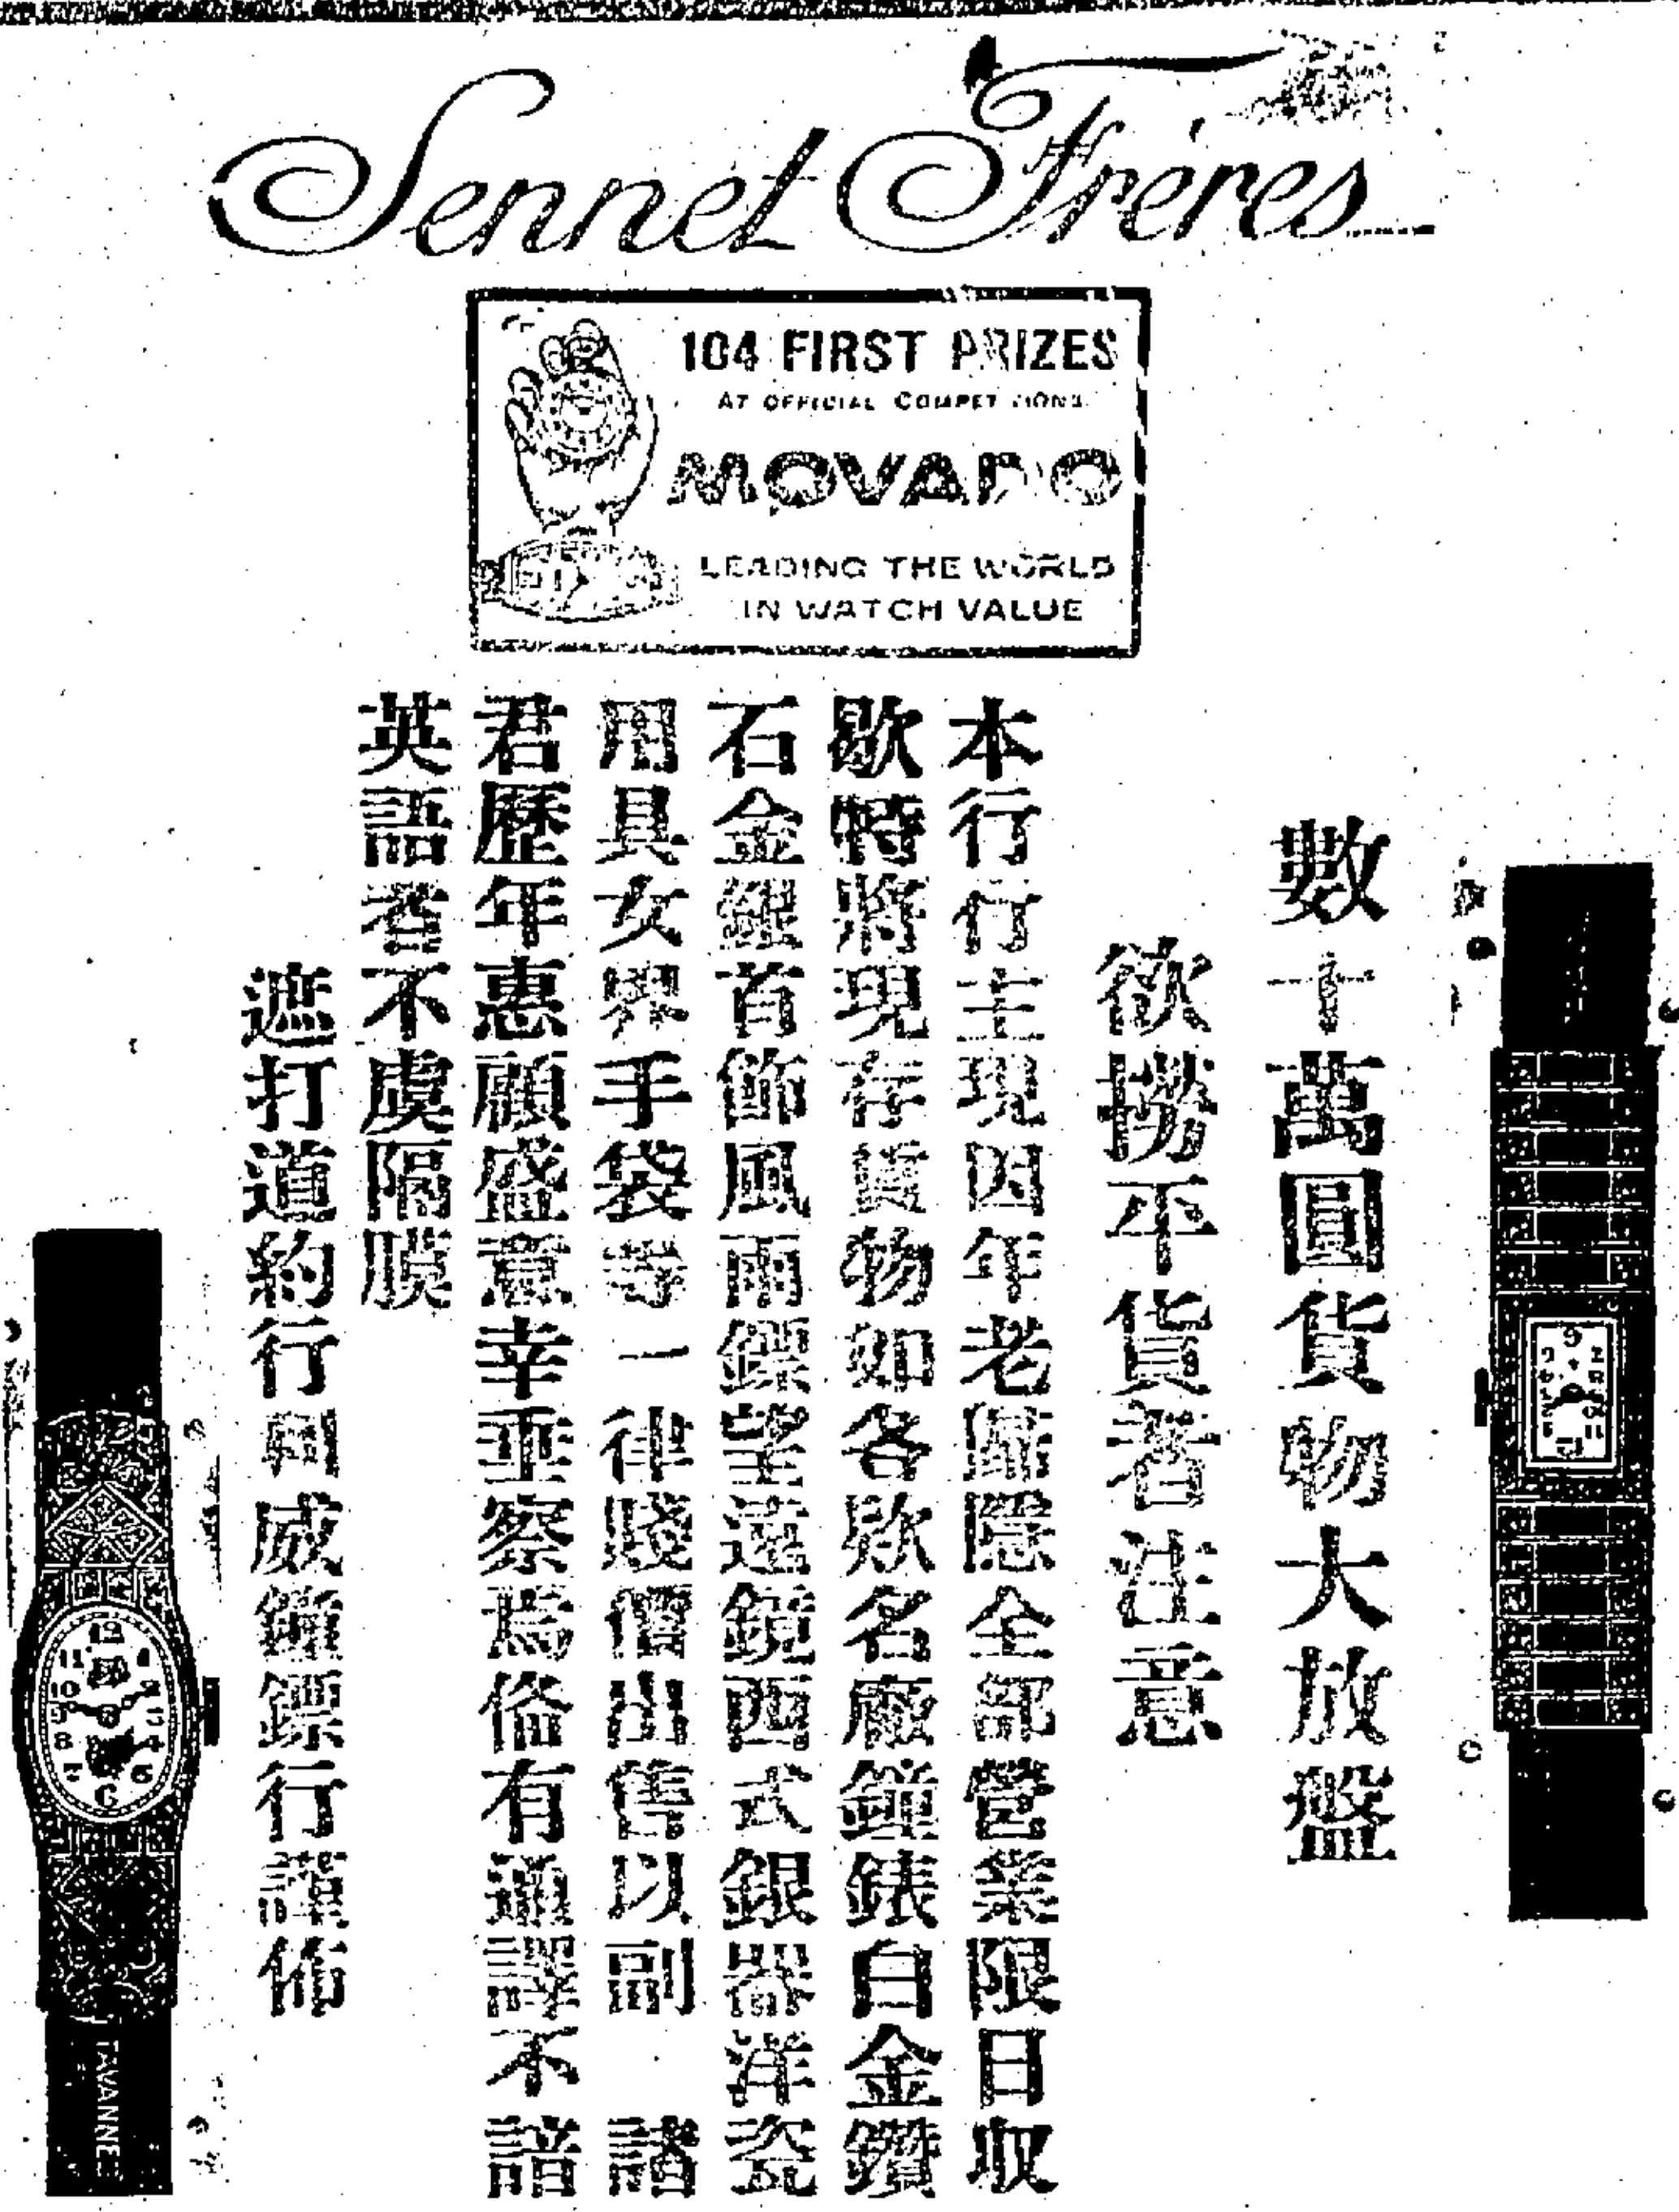 Sennet Frères
104 FIRST PRIZES
AT OFFICIAL COMPETITIONS
MOVADO
LEADING THE WORLD
IN WATCH VALUE
數十萬圓貨物大放盤
欲撈平貨者注意
本行行主現因年老歸隱全部營業限日収
歇特將現存貨物如各欵名廠鐘錶白金鑽
石金鏈首飾風雨鏢望遠鏡西式銀器洋瓷
用具女界手袋等一律賤價出售以副 諸
君歷年惠顧盛意幸垂察焉俻有通譯不諳
英語者不虞隔膜
遮打道約行 威鐘鏢行謹佈
TAVANNES